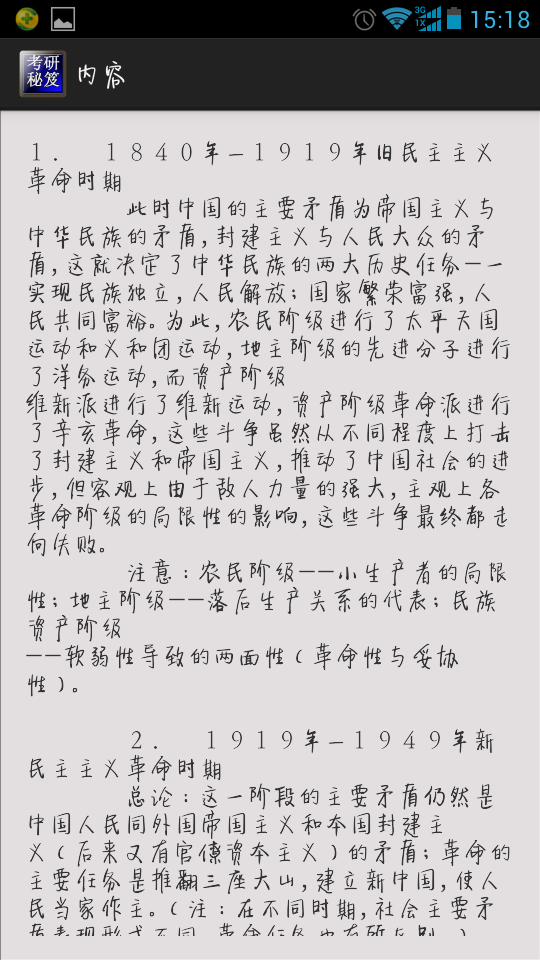 3G
1X
15:18
考研
秘笈
内容
1. 1840年—1919年旧民主主义
革命时期
此时中国的主要矛盾为帝国主义与
中华民族的矛盾,封建主义与人民大众的矛
盾,这就决定了中华民族的两大历史任务——
实现民族独立,人民解放;国家繁荣富强,人
民共同富裕。为此,农民阶级进行了太平天国
运动和义和团运动,地主阶级的先进分子进行
了洋务运动,而资产阶级
维新派进行了维新运动,资产阶级革命派进行
了辛亥革命,这些斗争虽然从不同程度上打击
了封建主义和帝国主义,推动了中国社会的进
步,但客观上由于敌人力量的强大,主观上各
革命阶级的局限性的影响,这些斗争最终都走
向失败。
注意:农民阶级——小生产者的局限
性;地主阶级——落后生产关系的代表;民族
资产阶级
——软弱性导致的两面性(革命性与妥协
性)。
2. 1919年—1949年新
民主主义革命时期
总论:这一阶段的主要矛盾仍然是
中国人民同外国帝国主义和本国封建主
义(后来又有官僚资本主义)的矛盾;革命的
主要任务是推翻三座大山,建立新中国,使人
民当家作主。(注:在不同时期,社会主要矛
盾表现形式不同,革命任务也有所区别。)